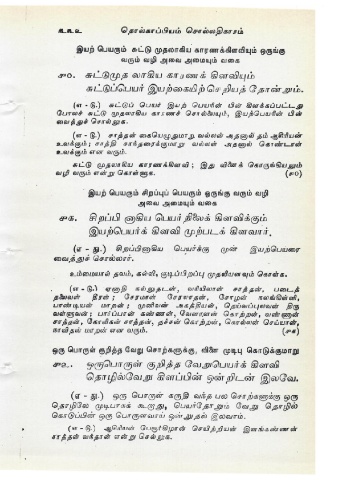 தொல்காப்பியம் சொல்லதிகாரம்
இயற் பெயரும் சுட்டு முதலாகிய காரணக்கிளவியும் ஒருங்கு
வரும் வழி அவை அமையும் வகை
௪௦. சுட்டுமுத லாகிய காரணக் கிளவியும்
சுட்டுப்பெயர் இயற்கையிற் செறியத் தோன்றும்.
(எ - டு.) சுட்டுப் பெயர் இயற் பெயரின் பின் கிளக்கப்பட்டது
போலச் சுட்டு முதலாகிய காரணச் சொல்லையும், இயற்பெயரின் பின்
வைத்துச் சொல்லுக.
(எ - டு.) சாத்தன் கையெழுதுமாறு வல்லன் அதனால் தம் ஆசிரியன்
உவக்கும்; சாத்தி சாந்தரைக்குமாறு வல்லள் அதனால் கொண்டான்
உவக்கும் என வரும்.
சுட்டு முதலாகிய காரணக்கிளவி ; இது வினைக் கொருங்கியலும்
வழி வரும் என்று கொள்ளுக. (௪௦)
இயற் பெயரும் சிறப்புப் பெயரும் ஒருங்கு வரும் வழி
அவை அமையும் வகை
௪௧. சிறப்பி னாகிய பெயர்நிலைக் கிளவிக்கும்
இயற்பெயர்க் கிளவி முற்படக் கிளவார்.
(எ - து.) சிறப்பினாகிய பெயர்க்கு முன் இயற்பெயரை
வைத்துச் சொல்லார்.
உம்மையால் தவம், கல்வி, குடிப்பிறப்பு முதலியனவும் கொள்க.
(எ-டு.) ஏனாதி நல்லுதடன், வலியிலான் சாத்தன், படைத்
தலைவன் தீரன்; சேரமான் சேரலாதன், சோழன் நலங்கிள்ளி,
பாண்டியன் மாறன்; முனிவன் அகத்தியன், தெய்வப்புலவன் திரு
வள்ளுவன்; பார்ப்பான் கண்ணன், வேளாளன் கொற்றன், வண்ணான்
சாத்தன், கோலிகன் சாத்தன், தச்சன் கொற்றன், கொல்லன் சேய்யான்,
நாவிதன் மாறன் என வரும். (௪௧)
ஒரு பொருள் குறித்த வேறு சொற்களுக்கு, வினை முடிபு கொடுக்குமாறு
௪௨. ஒருபொருள் குறித்த வேறுபெயர்க் கிளவி
தொழில்வேறு கிளப்பின் ஒன்றிடன் இலவே.
(எ - து.) ஒரு பொருள் கருதி வந்த பல சொற்களுக்கு ஒரு
தொழிலே முடிபாகக் கூறாது, பெயர்தோறும் வேறு தொழில்
கொடுப்பின் ஒரு பொருளவாய் ஒன்றுதல் இலவாம்.
(எ - டு.) ஆசிரியன் பேரூர்கிழான் செயிற்றியன் இளங்கண்ணன்
சாத்தன் வந்தான் என்று செல்லுக.